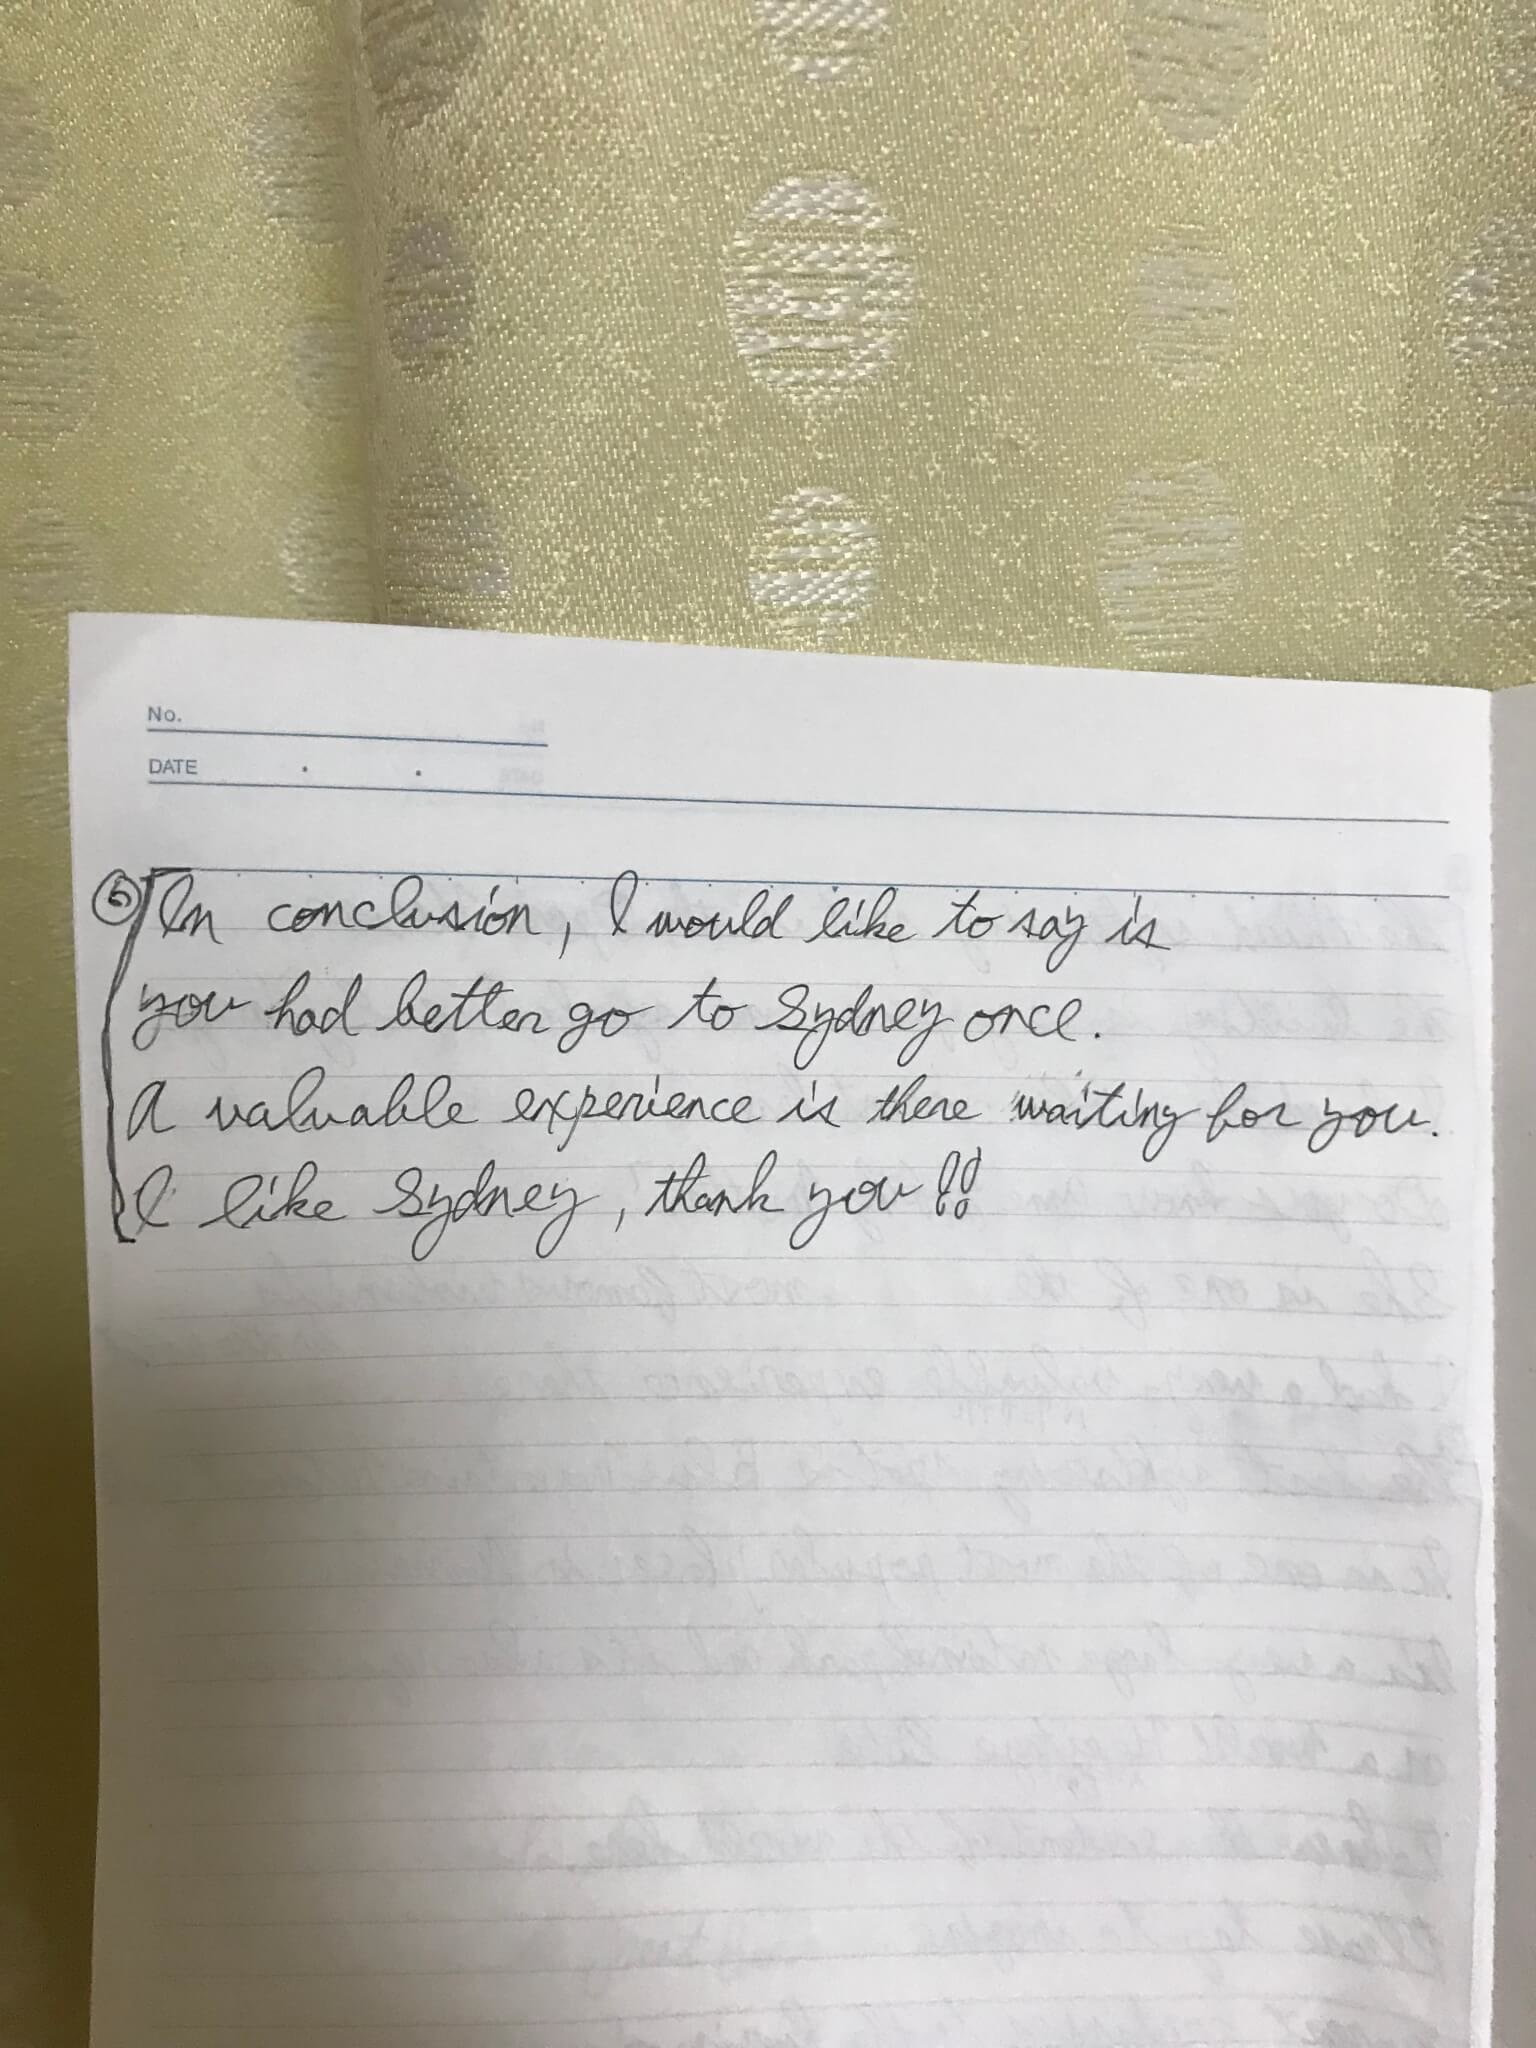 No.
DATE . .
⑥ In conclusion, I would like to say is
you had better go to Sydney once.
A valuable experience is there waiting for you.
I like Sydney, thank you!!